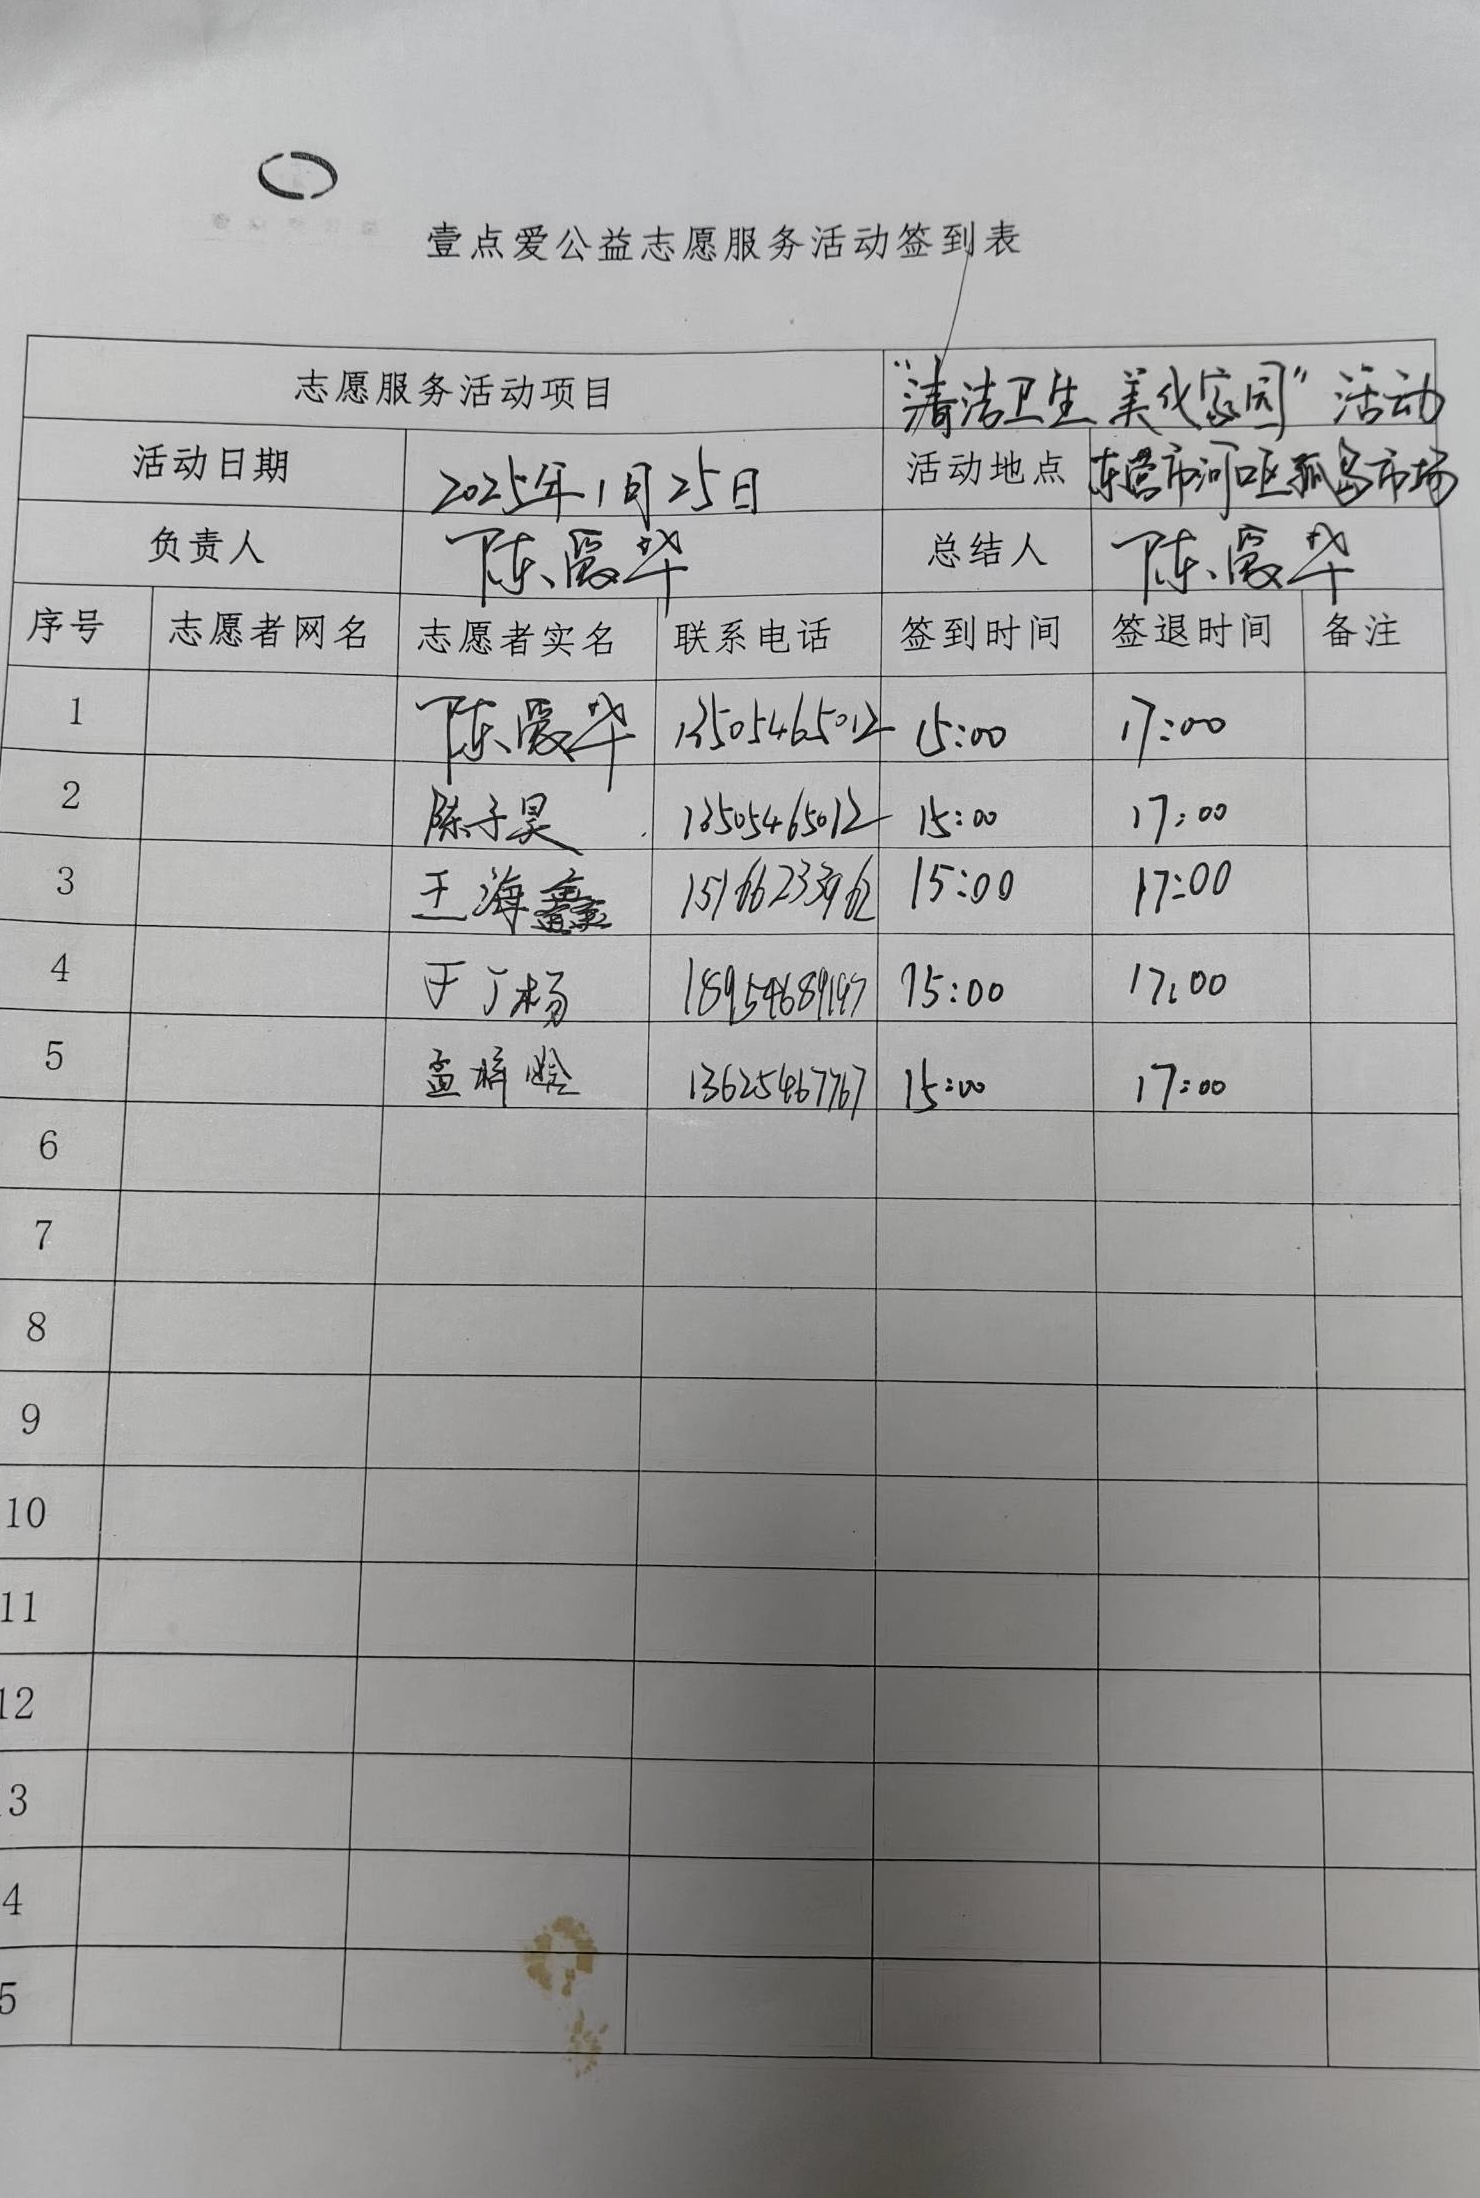 壹点爱公益志愿服务活动签到表
志愿服务活动项目 “清洁卫生 美化家园”活动
活动日期 2025年1月25日 活动地点 东营市河口区孤岛市场
负责人 陈爱华 总结人 陈爱华
序号 志愿者网名 志愿者实名 联系电话 签到时间 签退时间 备注
1 陈爱华 13505465012 15:00 17:00
2 陈子昊 13505465012 15:00 17:00
3 王海鑫 15166233962 15:00 17:00
4 于丁杨 15:00 17:00
5 孟梓晗 13625467767 15:00 17:00
6
7
8
9
10
11
12
3
4
5